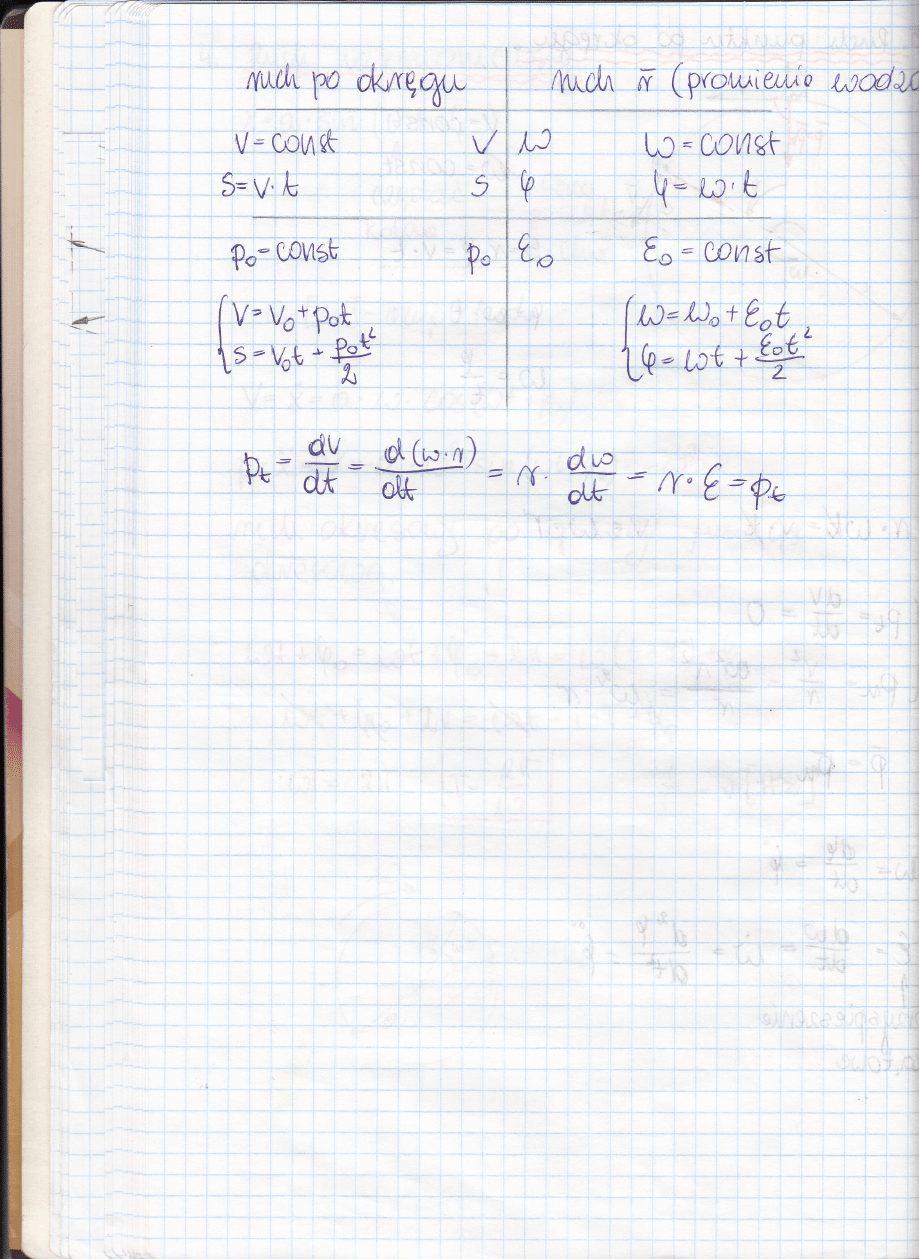 ruch po okręgu ruch r̄ (promienia wodzą
V = const V ω ω = const
s = V · t s φ φ = ω · t
p₀ = const p₀ ε₀ ε₀ = const
V = V₀ + p₀t ω = ω₀ + ε₀t
s = V₀t + p₀t²/2 φ = ωt + ε₀t²/2
pₜ = dV/dt = d(ω·r)/dt = r · dω/dt = r · ε = pₜ